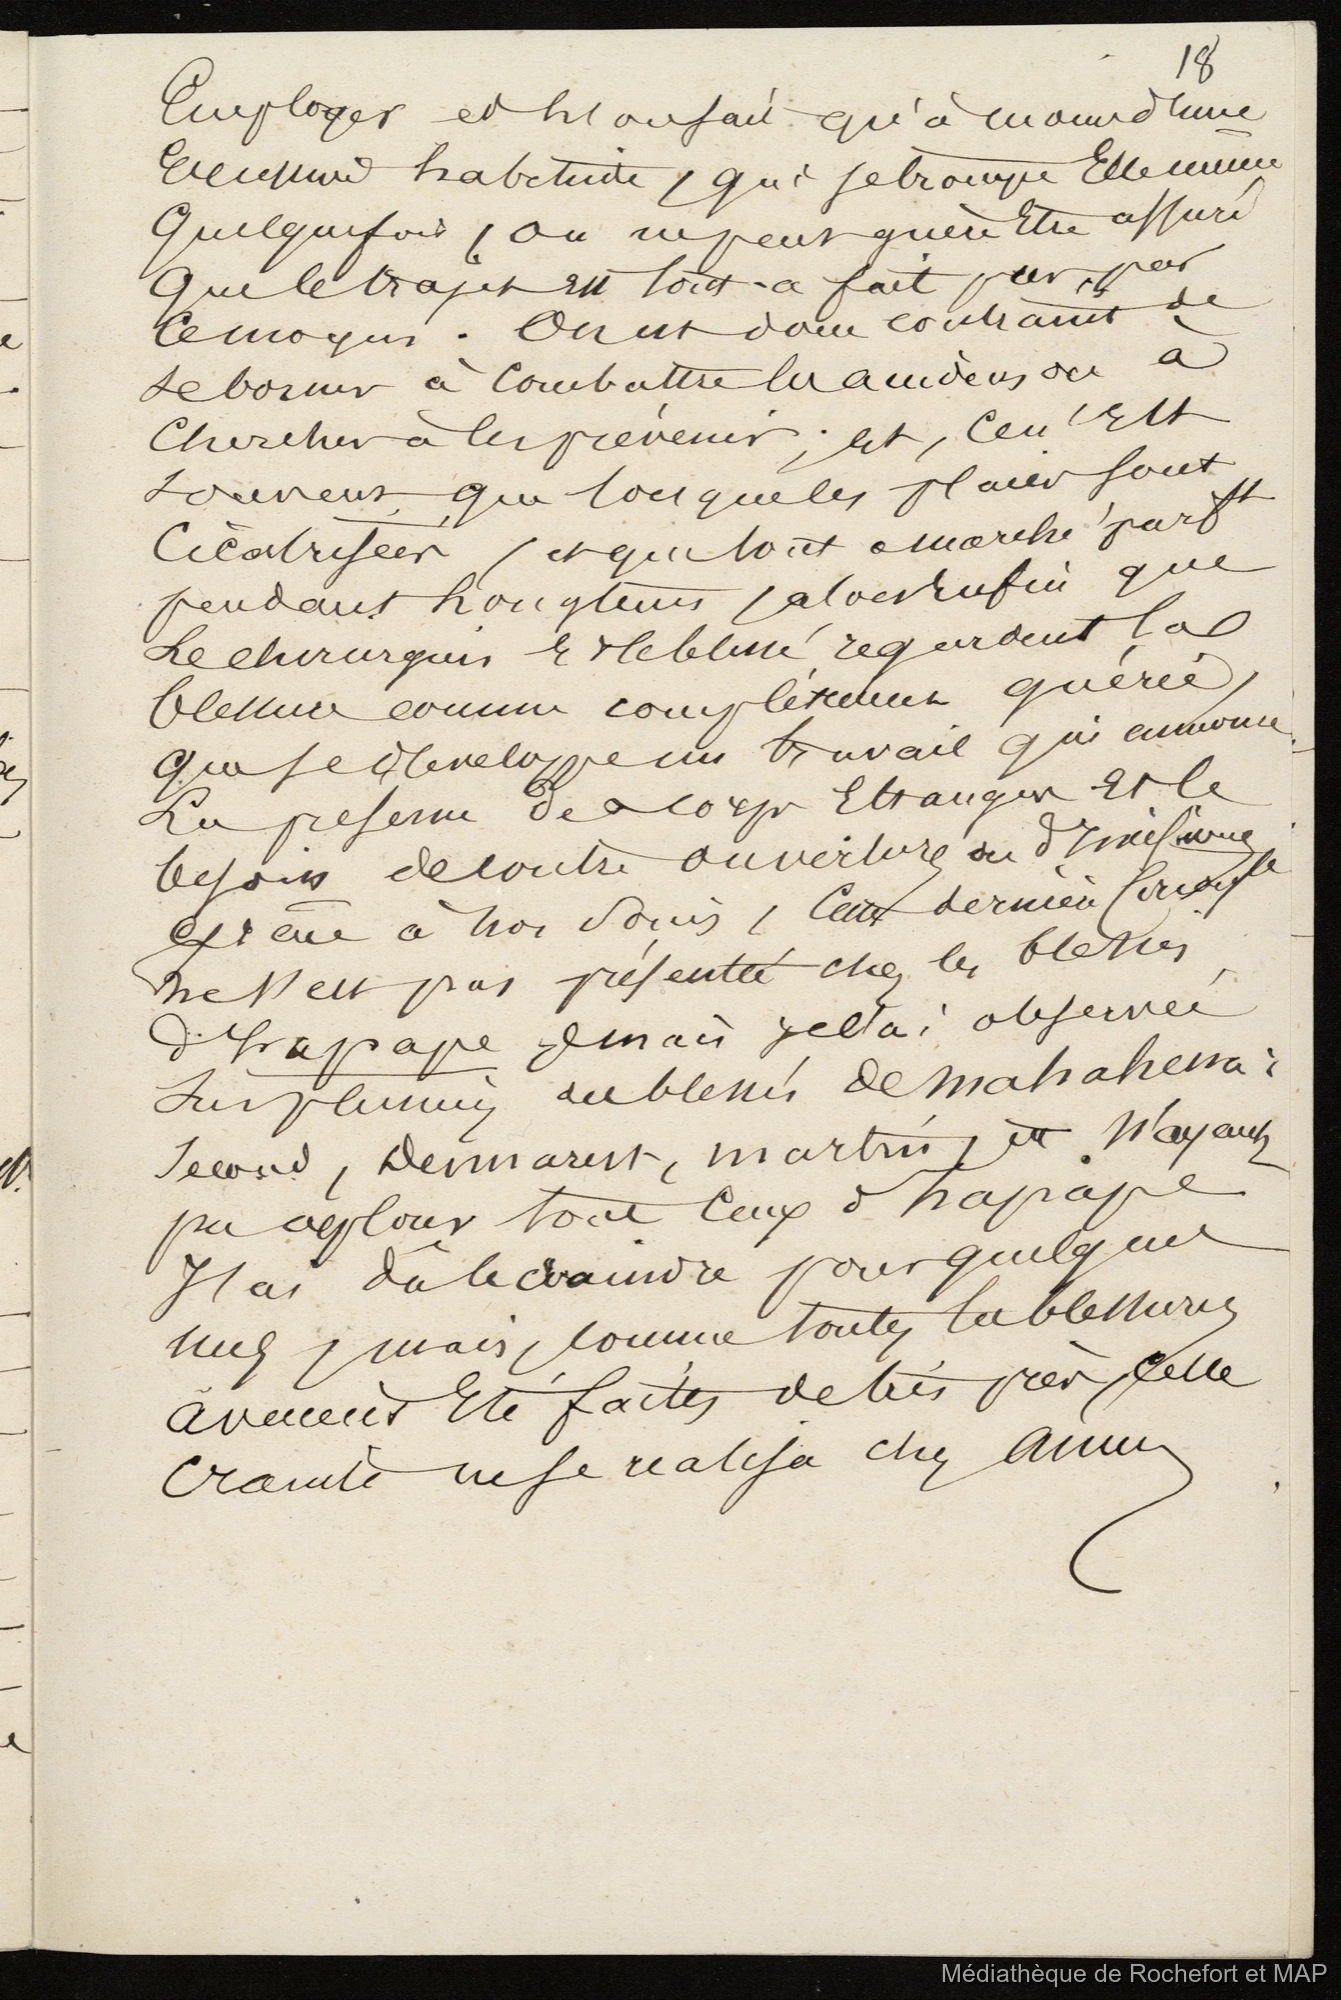 18
Employer et l'on sait qu'à moins d'une
Excessive habitude, qui se trompe Elle même
Quelquefois, on ne peut guère Etre assuré
Que le trajet est tout-a fait pur par
Ce moyen. On est donc contraint de
se borner à Combattre les accidens ou à
Chercher à les prévenir; et, Ce n'Est
souvent que lorsque les plaies sont
Cicatrisées, et que tout a marché parft
pendant longtems, alors enfin que
Le chirurgien Et le blessé regardent la
blessure comme complétement guérie,
que se développe un travail qui annonce
La presense de corps Etranger Et le
besoin de contre ouverture ou d'incisions
Grâce à nos soins, Cette dernière
ne s'est pas présentée chez les blessés
d'hapape mais je l'ai observée
sur plusieurs des blessés de mahahena:
Second, Desmarest, martin, et N'ayant
pu explorer tous Ceux d'hapape
J'ai dû le craindre pour quelques
uns, mais, comme toutes les blessures
avaient Eté faites de très près, cette
crainte ne se realisa chez Aucun
Médiathèque de Rochefort et MAP